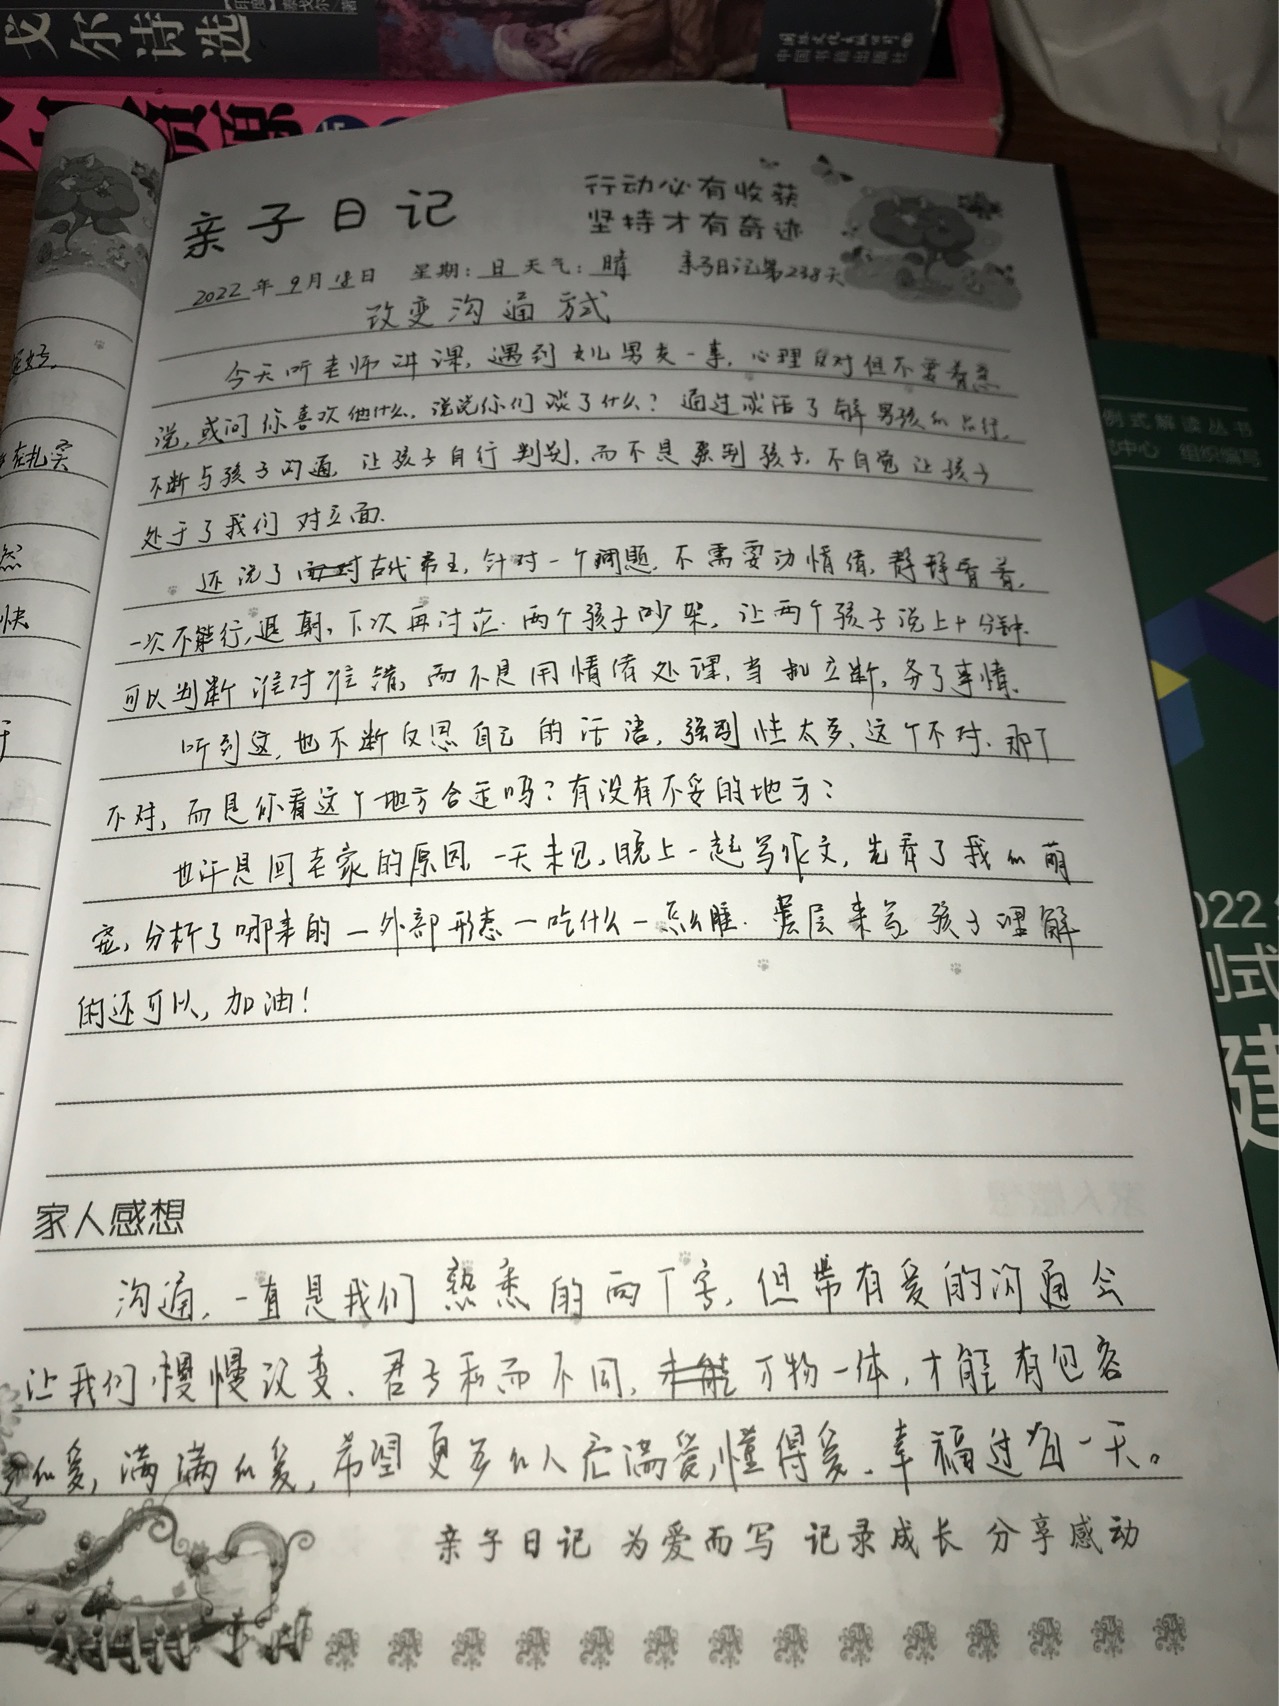 戈尔诗选
中国书籍出版社
亲子日记
行动必有收获
坚持才有奇迹
2022年9月18日 星期:日 天气:晴 亲子日记第238天
改变沟通方式
今天听老师讲课,遇到女儿男友一事,心理反对但不要着急
说,或问你喜欢他什么,说说你们谈了什么?通过谈话了解男孩的品行,
不断与孩子沟通,让孩子自行判别,而不是强制孩子,不自觉让孩子
处于了我们对立面.
还说了古代帝王,针对一个问题,不需要动情绪,静静看着,
一次不能行,退朝,下次再讨论.两个孩子吵架,让两个孩子说上十分钟.
可以判断谁对谁错,而不是用情绪处理,当机立断,务了事情.
听到这,也不断反思自己的话语,强制性太多,这个不对、那个
不对,而是你看这个地方合适吗?有没有不妥的地方?
也许是回老家的原因,一天未见,晚上一起写作文,先看了我的萌
宠,分析了哪来的—外部形态—吃什么—怎么睡.层层来写,孩子理解
的还可以,加油!
家人感想
沟通,一直是我们熟悉的两个字,但带有爱的沟通会
让我们慢慢改变、君子和而不同,万物一体,才能有包容
的爱,满满的爱,希望更多的人充满爱,懂得爱、幸福过每一天。
亲子日记 为爱而写 记录成长 分享感动
妊好.
在扎实
然
快
例式解读丛书
中心 组织编写
022
式
建